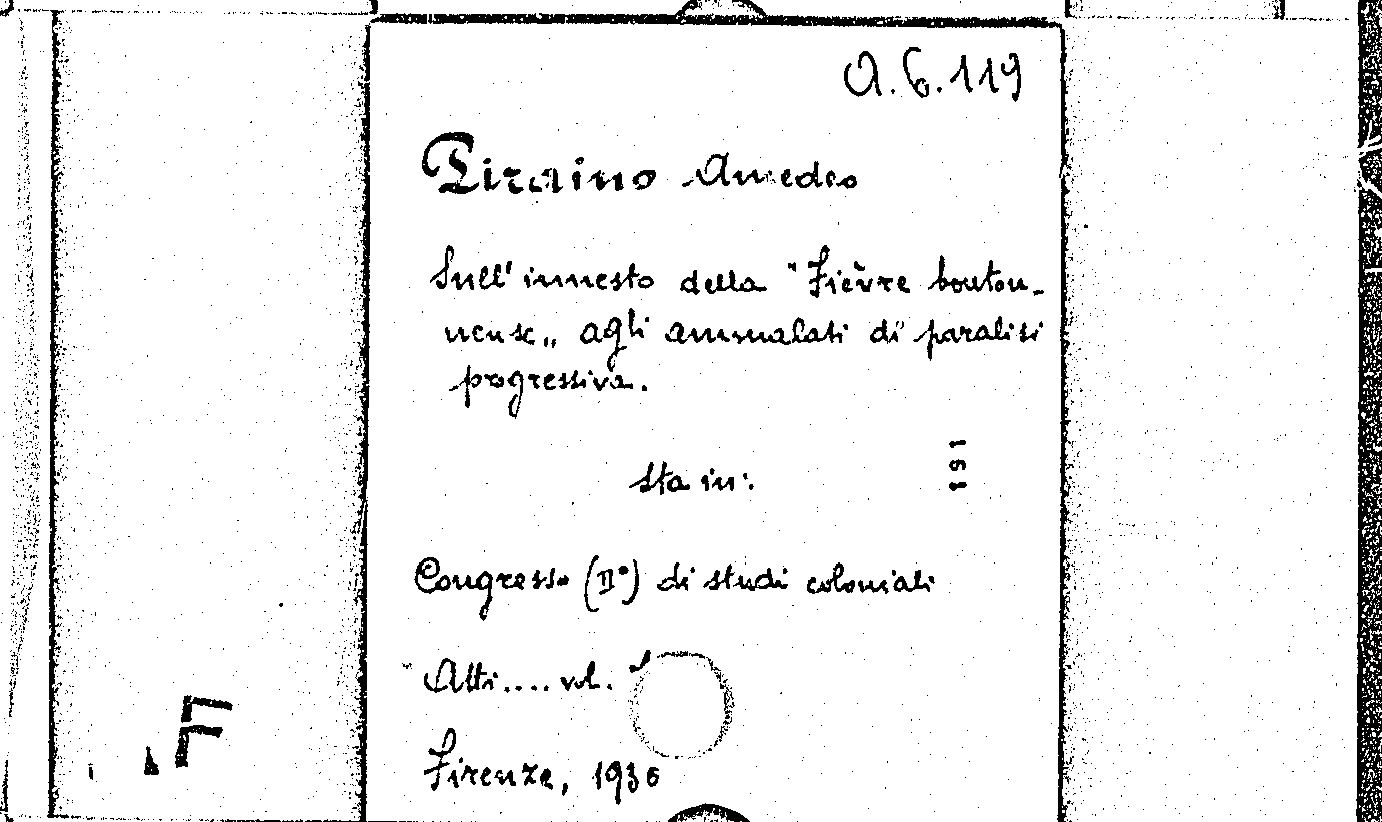 A.6.119
Piraino Amedeo
Sull'innesto della "Fièvre bouton-
neuse„ agli ammalati di paralisi
progressiva.
Sta in:
151
Congresso (II°) di studi coloniali
Atti.... vol.
Firenze, 1936
F